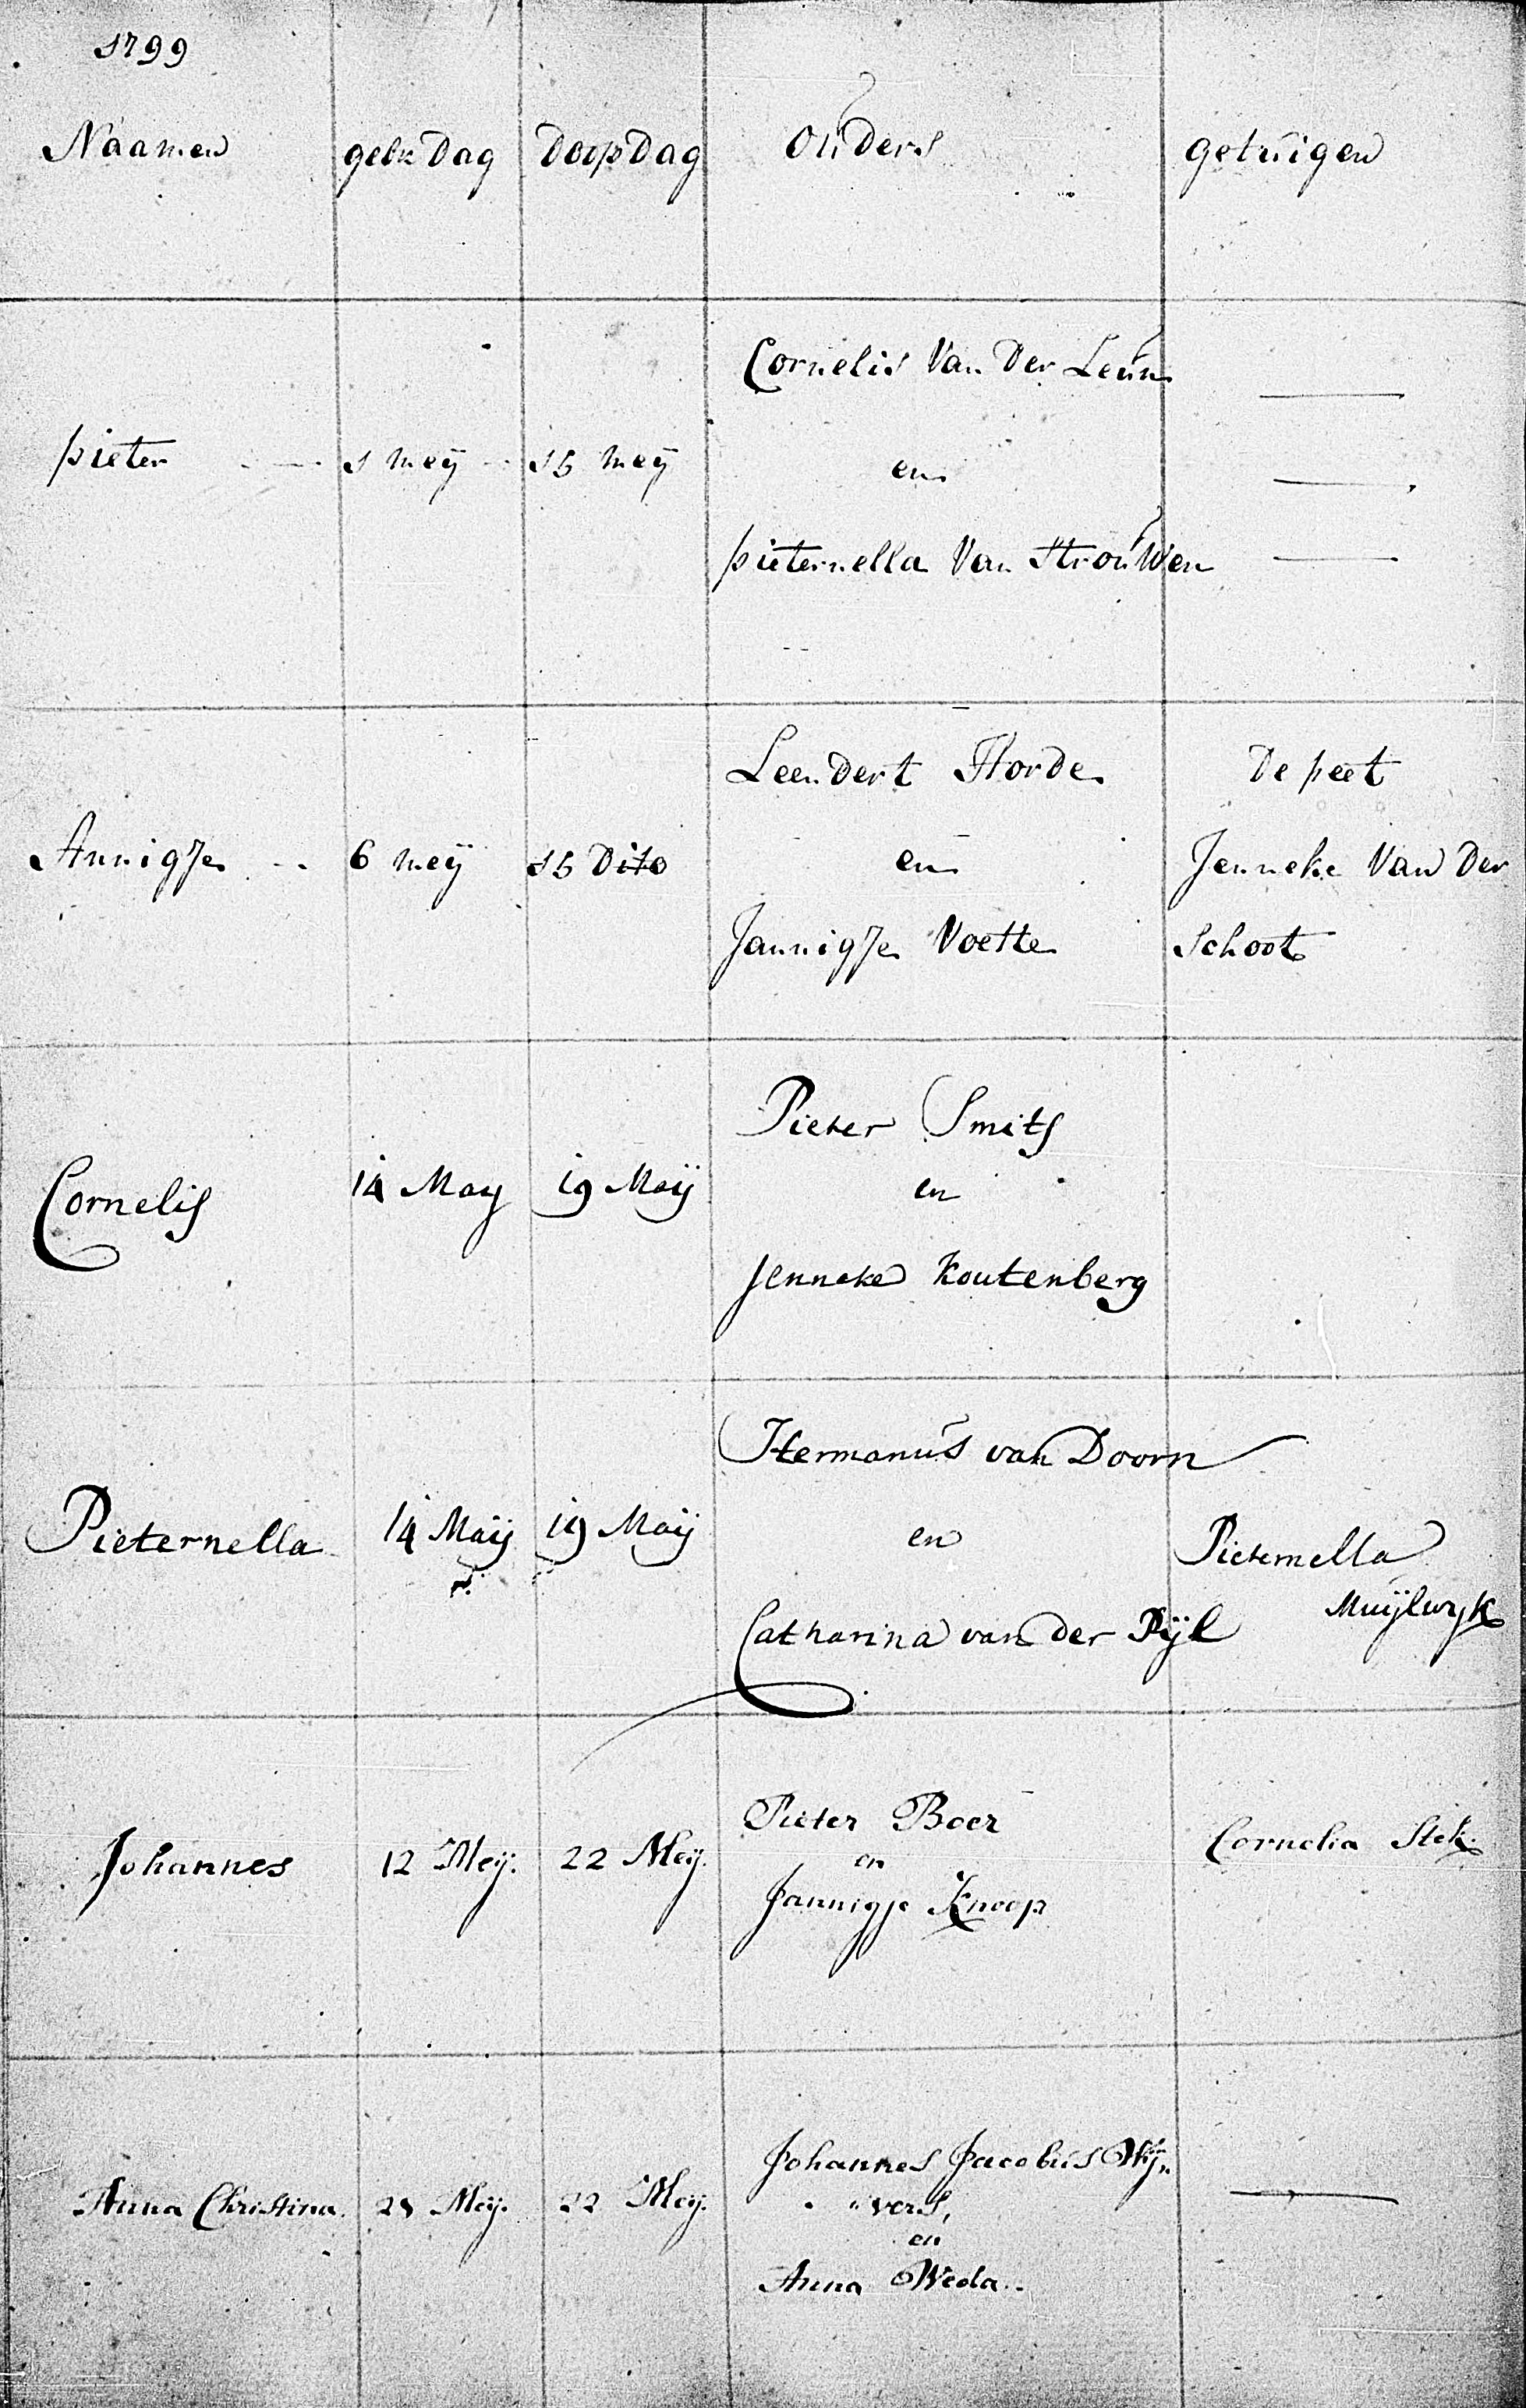 1799
Naamen gebr Dag DoopDag Ouders getuigen
Cornelis Van Der Leun
pieter 1 meÿ 15 meÿ en
pieternella Van Strouwen
Leendert Horde De peet
Annigje 6 meÿ 15 Dito en Jenneke Van Der
Jannigje Voette Schoot
Pieter Smits
Cornelis 14 May 19 Maÿ en
Jenneke Koutenberg
Hermanus van Doorn
Pieternella 14 Maÿ 19 Maÿ en Pieternella
Muÿlwyk
Catharina van der Pÿl
Pieter Boer Cornelia Stek.
Johannes 12 Meÿ. 22 Meÿ. en
Jannigje Knoop
Johannes Jacobus Wijn
Anna Christina. 21 Meÿ. 22 Meÿ. vers,
en
Anna Weda.